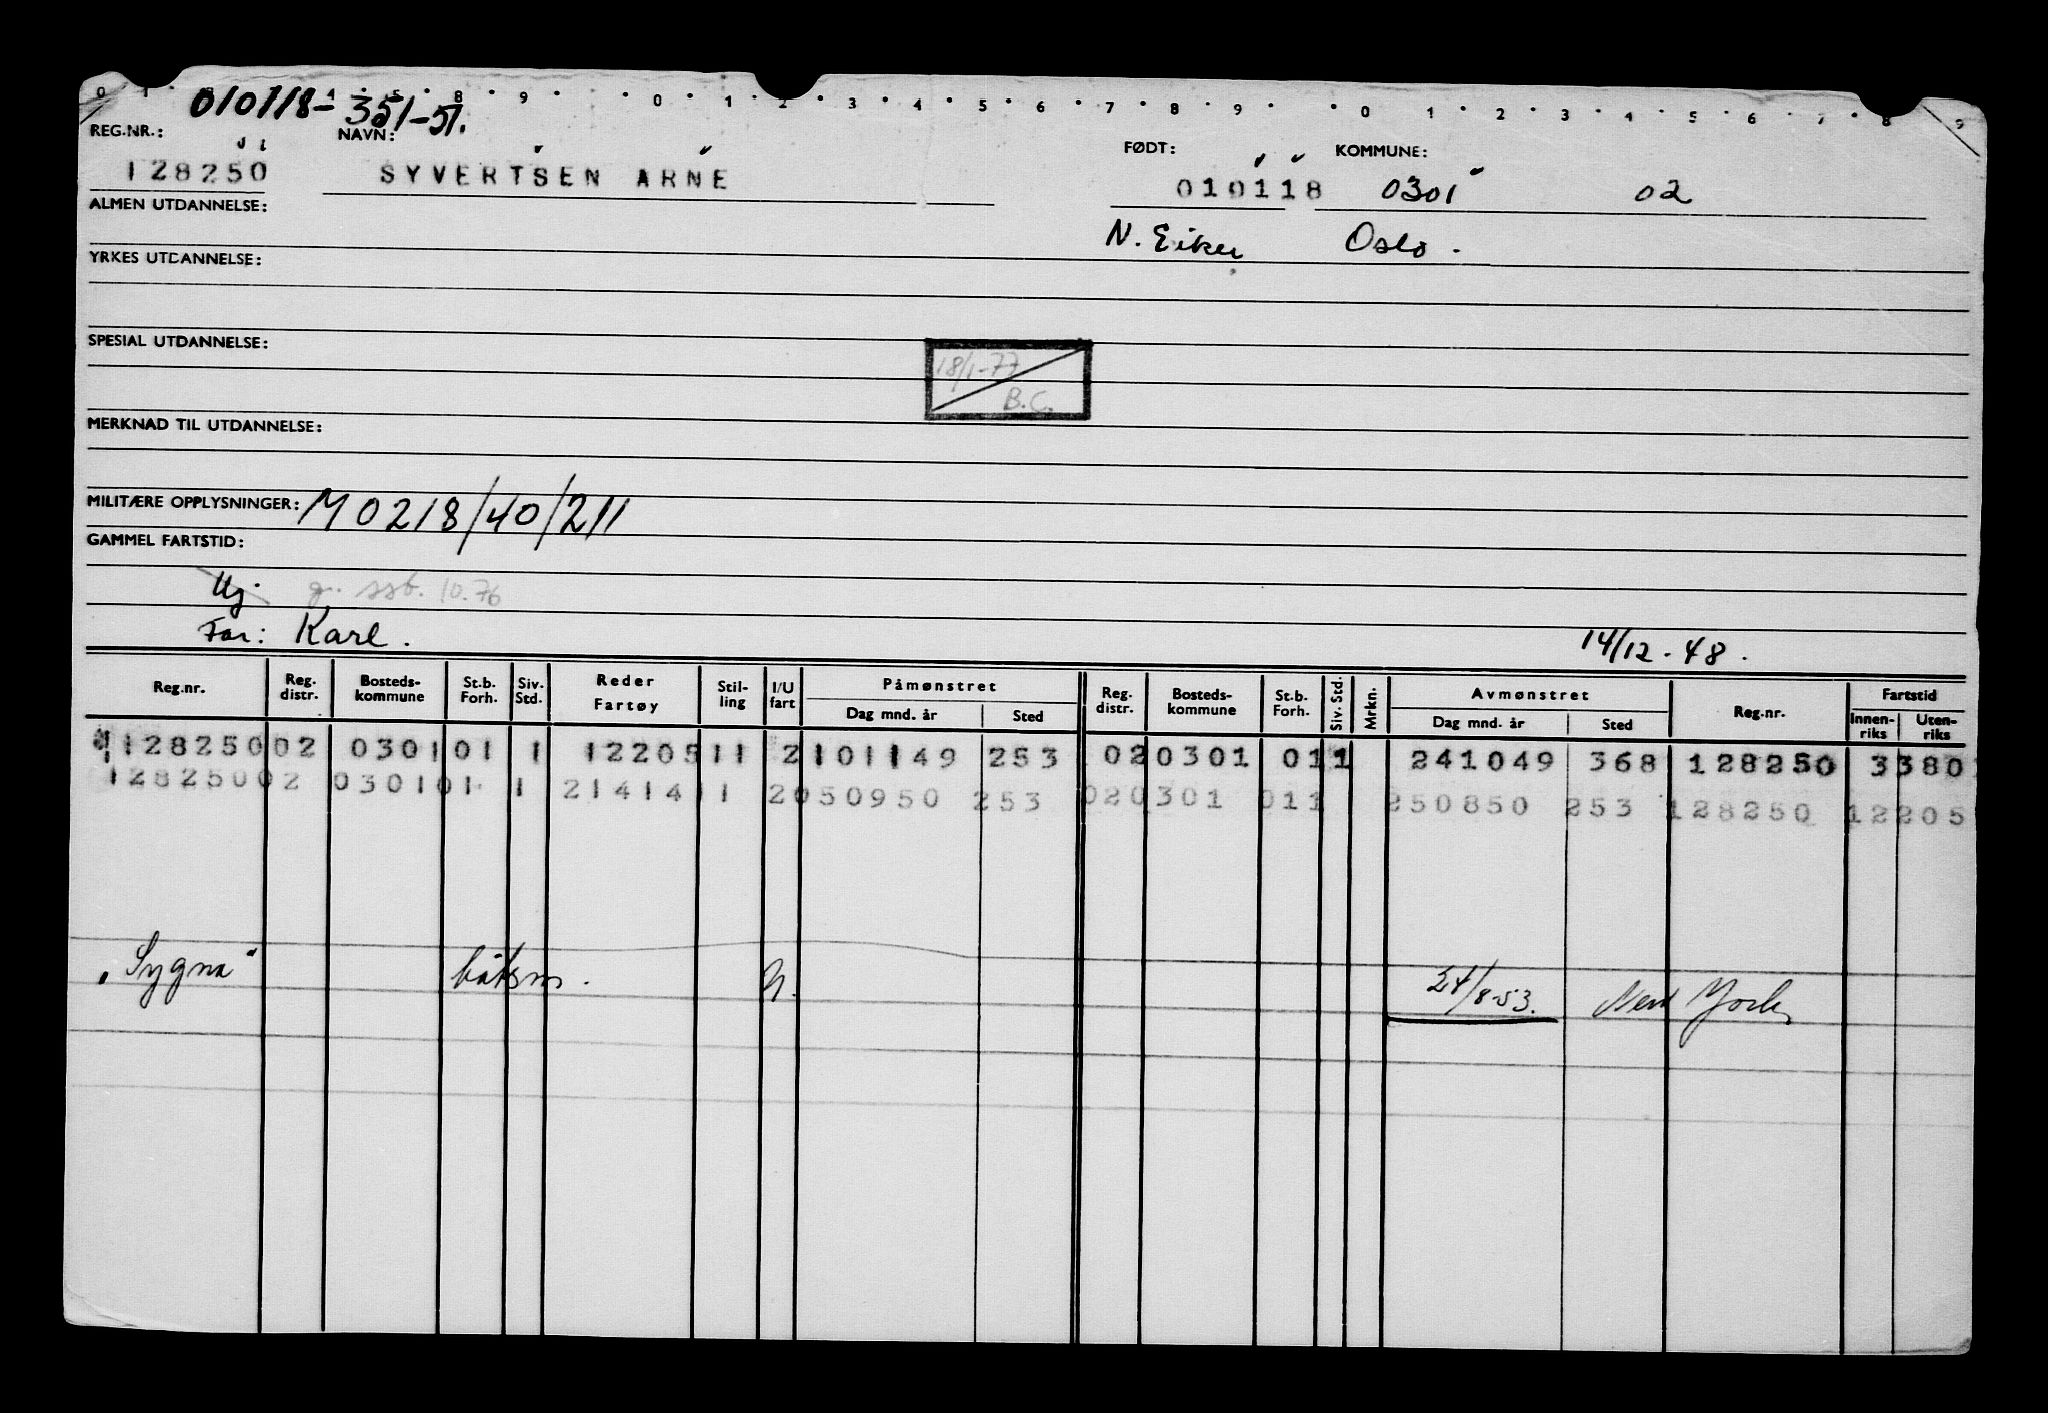 0 1 4 5 8 9 0 1 2 3 4 5 6 7 8 9 0 1 2 3 4 5 6 7 8 9
010118-351-51.
REG.NR.: NAVN: FØDT: KOMMUNE:
128250 SYVERTSEN ARNE 010118 0301 02
ALMEN UTDANNELSE: N. Eiker Oslo.
YRKES UTDANNELSE:
SPESIAL UTDANNELSE:
18/1-77
B.C.
MERKNAD TIL UTDANNELSE:
MILITÆRE OPPLYSNINGER: M 0218/40/211
GAMMEL FARTSTID:
Uj g. sst. 10.76
Far: Karl. 14/12-48.
Reg.nr. Reg. distr. Bosteds-kommune St.b. Forh. Siv. Std. Reder Fartøy Stil-ling I/U fart Påmønstret Dag mnd. år Sted Reg. distr. Bosteds-kommune St.b. Forh. Siv. Std. Mrkn. Avmønstret Dag mnd. år Sted Reg.nr. Fartstid Innen-riks Uten-riks
128250 02 0301 01 1 12205 11 2 101149 253 02 0301 01 1 241049 368 128250 3380
128250 02 0301 01 1 21414 11 2 050950 253 02 0301 01 1 250850 253 128250 12205
"Sygna" båtsm. 24/8-53. New York